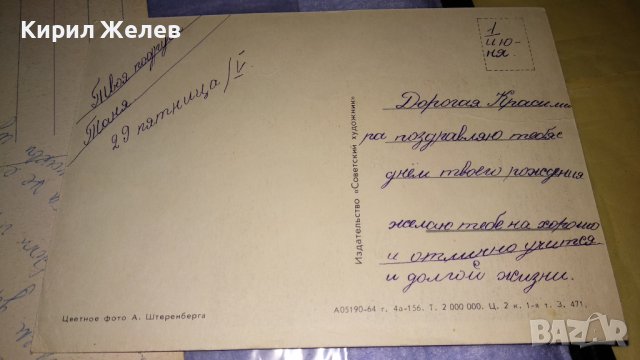 Кирил Желев
1
ию-
ня.
Твоя подру
Таня
29 пятница/V.
Дорогая Красими
ра поздравляю тебя с
днём твоего рождения
желаю тебе на хорошо
и отлично учится
и долгой жизни.
Издательство «Советский художник»
Цветное фото А. Штеренберга
А05190-64 г. 4а-156. Т. 2 000 000. Ц. 2 к. 1-я т. З. 471.
bazar